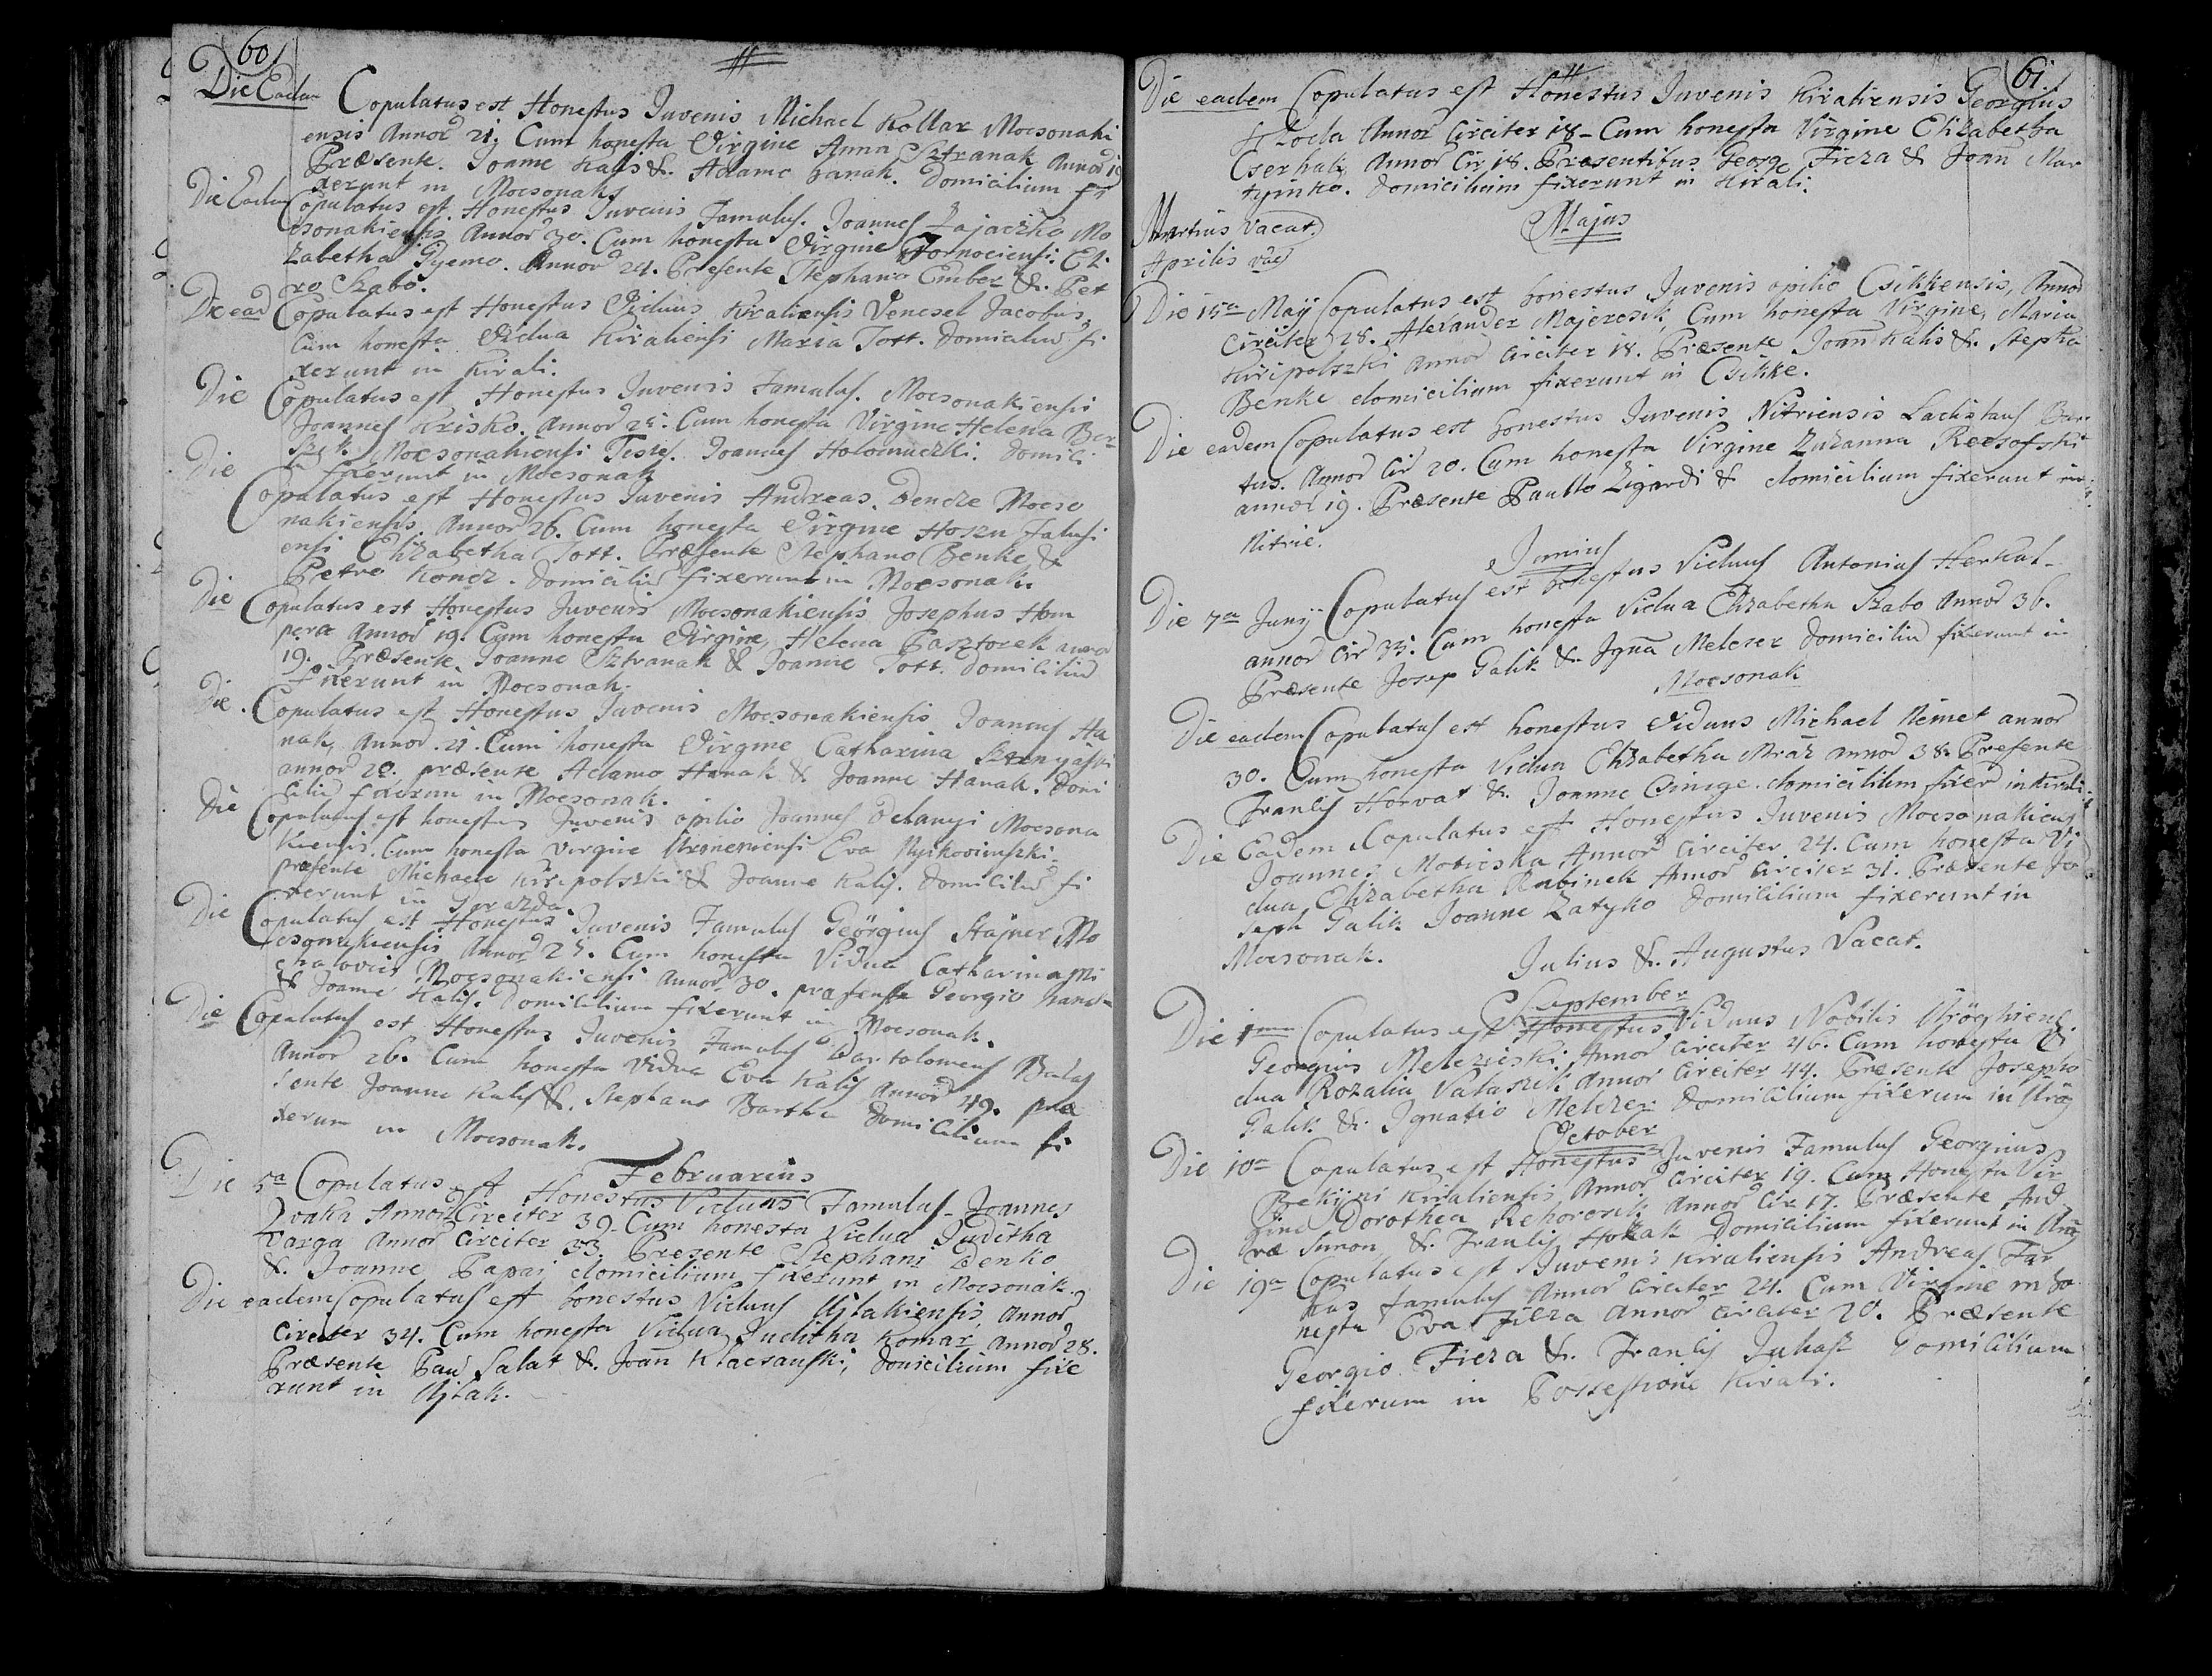 60
Die Eadem Copulatus est Honestus Juvenis Michael Kollar Mocsonaki
ensis Annor 21. Cum honesta Virgine Anna Sztranak Annor 19
Præsente Joanne Kalis &. Adamo Hanak. Domicilium fi
xerunt in Mocsonak
Die Eadem Copulatus est Honestus Juvenis Famulus. Joannes Zajaczko Mo
csonakiensis Annor 30. Cum honesta Virgine Tornociensi Eli
zabetha Gyemo. Annor 24. Præsente Stephano Ember &. Pet
ro Szabo.
Die ead Copulatus est Honestus Viduus Kiraliensis Vencsel Jacobus,
Cum honesta Vidua Kiraliensi Maria Tott. Domicilium fi
xerunt in Kirali.
Die Copulatus est Honestus Juvenis Famulus. Mocsonakiensis
Joannes Krisko. Annor 25. Cum honesta Virgine Helena Ber
Mocsonakiensi Teste. Joannes Holomuczki. Domicili
fixerunt in Mocsonak
Die Copulatus est Honestus Juvenis Andreas. Dencze Mocso
nakiensis. Annor 26. Cum honesta Virgine Hoszu Falusi
ensi Elizabetha Tott. Præsente Stephano Benke &
Petro Koncz. Domiciliu fixerunt in Mocsonak.
Die Copulatus est Honestus Juvenis Mocsonakiensis Josephus Hom
pera Annor 19. Cum honesta Virgine, Helena Pasztorek annor
19. Præsente Joanne Sztranak & Joanne Tott. Domiciliu
fixerunt in Mocsonak.
Die. Copulatus est Honestus Juvenis Mocsonakiensis Joannes Ha
nak, Annor. 21. Cum honesta Virgine Catharina
annor 20. præsente Adamo Hanak & Joanne Hanak. Domi
ciliu fixerun in Mocsonak.
Die Copulatus est honestus Juvenis opilio Joannes Delanyi Mocsona
kiensis. Cum honesta Virgine Eva
præsente Michaele Kiripolszki & Joanne Kalis. Domiciliu fi
xerunt in Gorazda.
Die Copulatus est Honestus Juvenis Famulus Geörgius Stajner Mo
csonakiensis Annor 25. Cum honesta Vidua Catharina Mi
chalovics Mocsonakiensi Annor 30. præsente Georgio Hanak
& Joanne Kalis. Domicilium fixerunt in Mocsonak.
Die Copulatus est Honestus Juvenis Famulus Bartolomeus Balas
Annor 26. Cum honesta Vidua Eva Kalis Annor 49. præ
sente Joanne Kalis &. Stephano Bartha Domicilium fi
xerum in Mocsonak.
Februarius
Die 5ta Copulatus est Honestus Viduus Famulus Joannes
Zvaka Annor Circiter 39. Cum honesta Vidua Juditha
Varga Annor Circiter 33. Præsente Stephani Benko
&. Joanne Papai domicilium fixerunt in Mocsonak.
Die eadem Copulatus est honestus Viduus Ujlakiensis, Annor
Circiter 34. Cum honesta Vidua Juditha Komar Annor 28.
Præsente Pau Salat &. Joan Klacsanski, domicilium fixe
runt in Ujlak.
61
Die eadem Copulatus est Honestus Juvenis Kiraliensis Georgius
Annor Circiter 18. Cum honesta Virgine Elizabetha
Cserhak Annor Cir 18. Præsentibus Georg Ficza & Joan Mar
tyinko. Domicilium fixerunt in Kirali.
Martius Vacat.
Aprilis vac
Majus
Die 15ta Maÿ Copulatus est honestus Juvenis opilio Csikkensis, Annor
Circiter 28. Alexander Majercsik, Cum honesta Virgine, Maria
Kiripolszki annor Circiter 18. Præsente Joan Kalis &. Stepha
Benke domicilium fixerunt in Csikke.
Die eadem Copulatus est honestus Juvenis Nitriensis Ladislaus Bar
tus. Annor Cir 20. Cum honesta Virgine Zuzanna
annor 19. Præsente Paullo Zigardi & domicilium fixerunt in
Nitrie.
Junius
Die 7ma Junÿ Copulatus est honestus Viduus Antonius Herkal
annor Cir 33. Cum honesta Vidua Elizabetha Szabo Annor 36.
Præsente Josep Galik &. Igna Melczer Domiciliu fixerunt in
Mocsonak
Die eadem Copulatus est honestus Viduus Michael Német annor
30. Cum honesta Vidua Elizabetha Mráz annor 38. Præsente
Francis Horvat &. Joanne Csinige. domicilium fixer in Kirali.
Die Eadem Copulatus est Honestus Juvenis Mocsonakiens
Joannes Moticska Annor Circiter 24. Cum honesta Vi
dua Elizabetha Rabinek Annor Circiter 31. Præsente Jo
seph Galik Joanne Zatyko Domicilium fixerunt in
Mocsonak.
Julius &. Augustus Vacat.
September
Die 1ma Copulatus est Honestus Viduus Nobilis Üröghiens
Georgius Melezicski Annor Circiter 46. Cum honesta Vi
dua Rozalia Valaszek Annor Circiter 44. Præsente Josepho
Galik &. Ignatio Melczer Domicilium fixerum in Ürög
October
Die 10ma Copulatus est Honestus Juvenis Famulus Georgius
Kiraliensis Annor Circiter 19. Cum Honesta Vir
gine Dorothea Rehorcsik Annor Cir 17. Præsente And
ræ Simon &. Francis Domicilium fixerunt in
Die 19na Copulatus est Juvenis Kiraliensis Andreas Far
kas famulus Annor Circiter 24. Cum Virgine m ho
nesta Eva Ficza annor Circiter 20. Præsente
Georgio Ficza &. Francis Juhasz Domicilium
fixerum in Possessione Kirali.